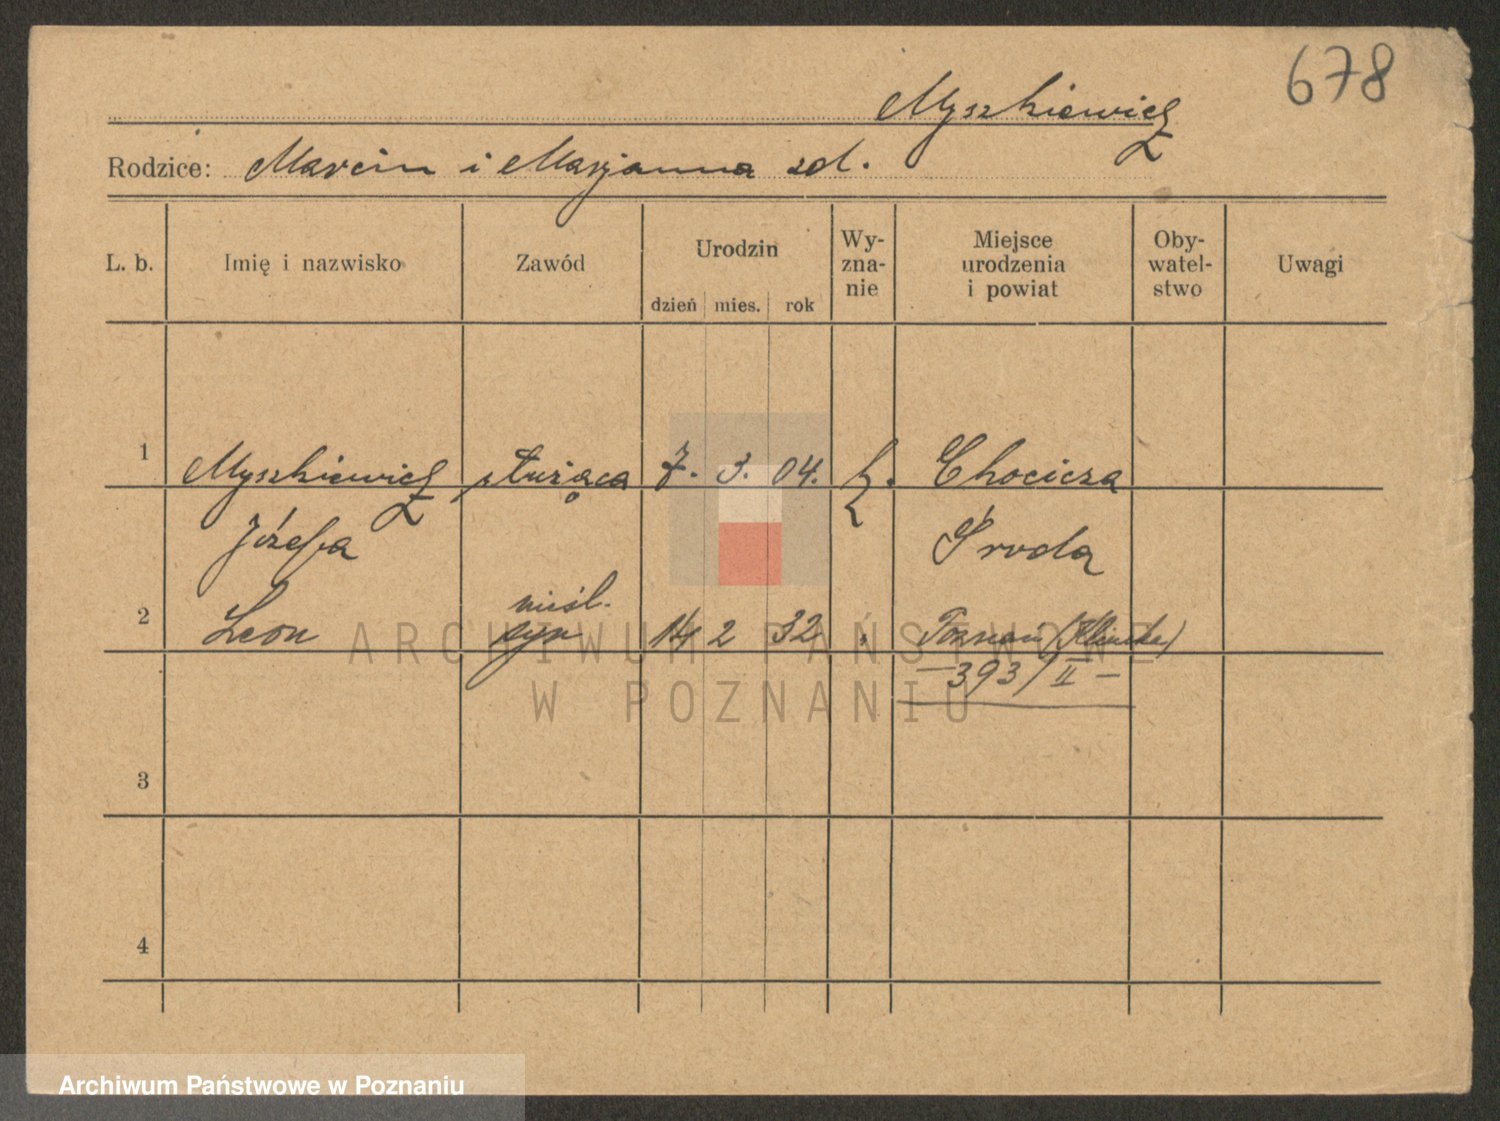 678
Myszkiewicz
Rodzice: Marcin i Marjanna zd.
L. b. Imię i nazwisko Zawód Urodzin dzień mies. rok Wy-zna-nie Miejsce urodzenia i powiat Oby-watel-stwo Uwagi
1 Myszkiewicz służąca 7. 3. 04. k. Chocicza
Józefa Środa
nieśl.
2 Leon syn 14 2 32 " Poznań
— 393/II —
3
4
ARCHIWUM PAŃSTWOWE
W POZNANIU
Archiwum Państwowe w Poznaniu